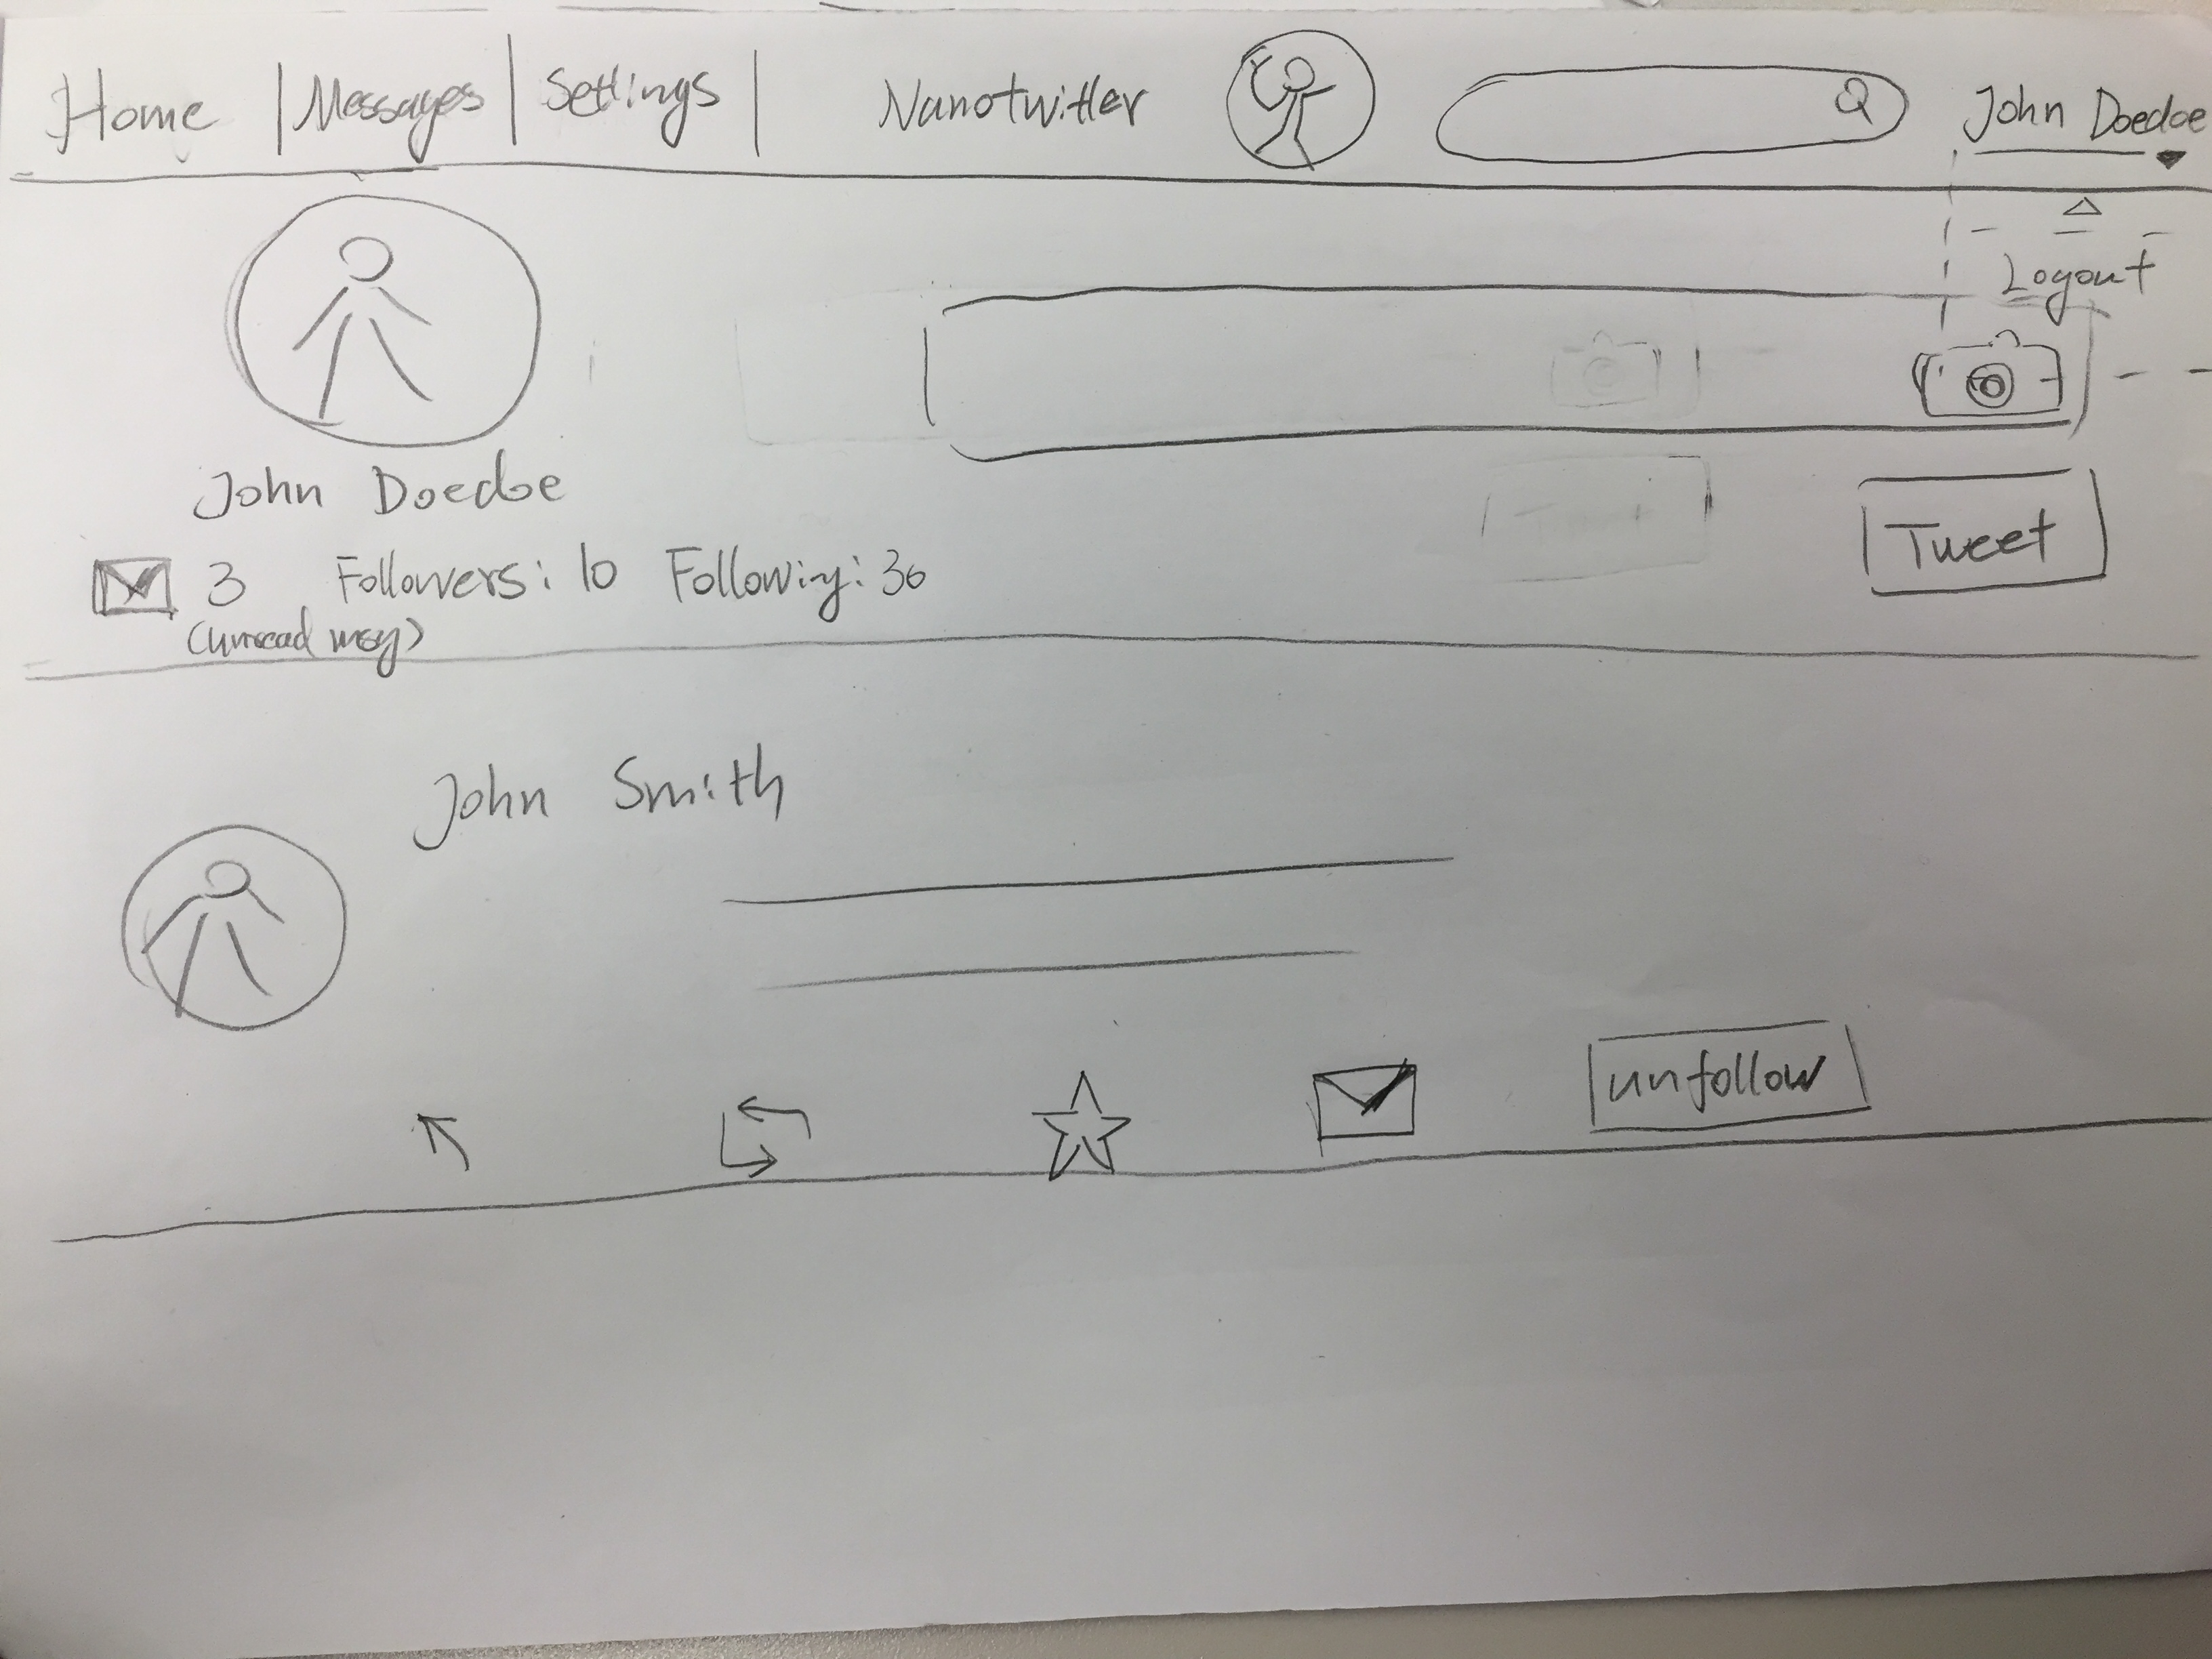 Home | Messages | Settings | Nanotwitter John Doedoe
Logout
John Doedoe
3 Followers: 10 Following: 30
(unread msg)
Tweet
John Smith
unfollow